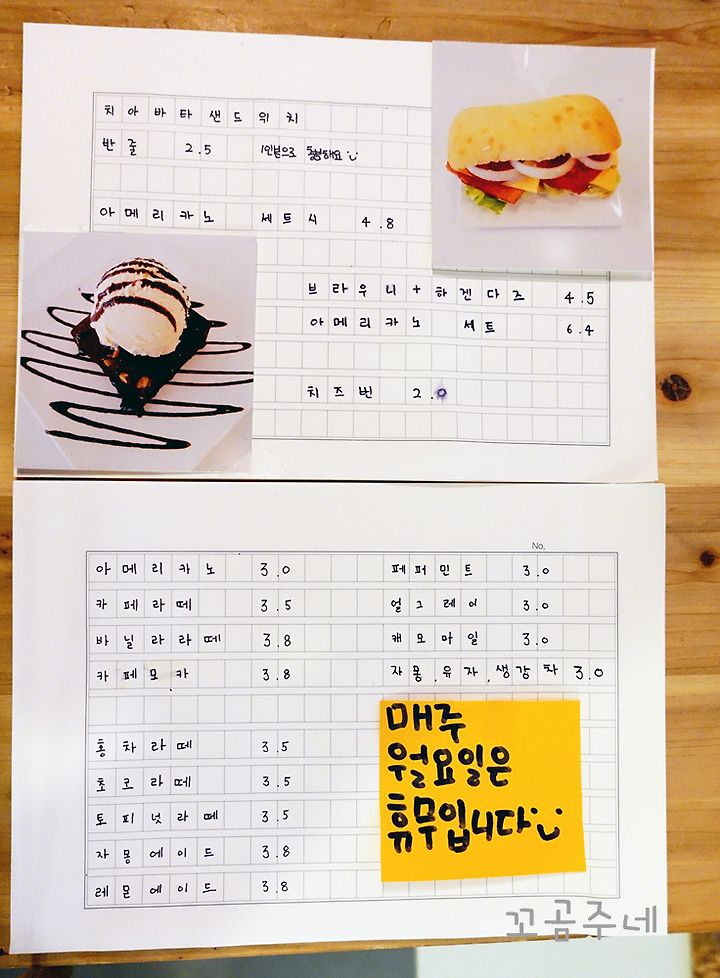 치아바타샌드위치
반 줄 2.5 1인분으로 충분해요
아메리카노 세트시 4.8
브라우니+하겐다즈 4.5
아메리카노 세트 6.4
치즈번 2.0
No.
아메리카노 3.0
카페라떼 3.5
바닐라라떼 3.8
카페모카 3.8
홍차라떼 3.5
초코라떼 3.5
토피넛라떼 3.5
자몽에이드 3.8
레몬에이드 3.8
페퍼민트 3.0
얼그레이 3.0
캐모마일 3.0
자몽,유자,생강차 3.0
매주
월요일은
휴무입니다
꼬곰주네